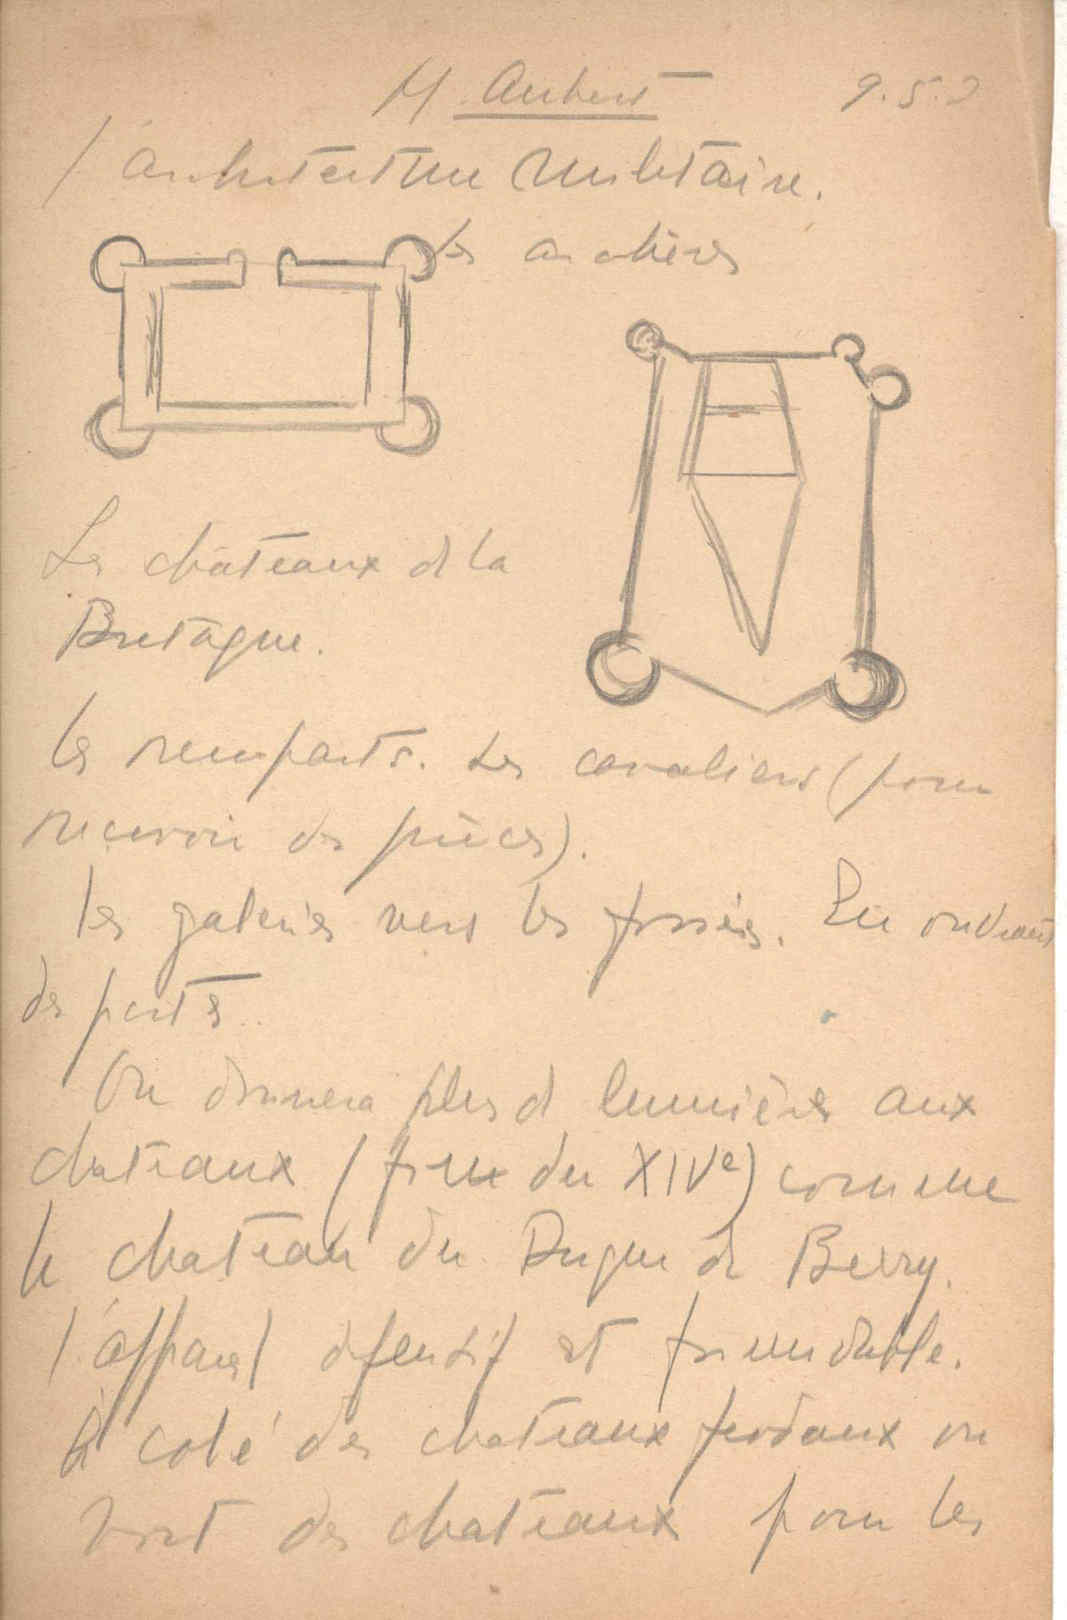 M. Aubert 9.5.3
l'architecture militaire.
Les archères
Les châteaux d la
Bretagne.
les remparts. Les cavaliers (pour
recevoir des pièces).
les galeries vers les fossés. En ouvrant
des portes.
On donnera plus d lumières aux
chateaux (fin du XIVe) comme
le chateau du Duque de Berry.
l'appareil défensif est formidable.
à coté des chateaux feodaux on
voit des chateaux pour les